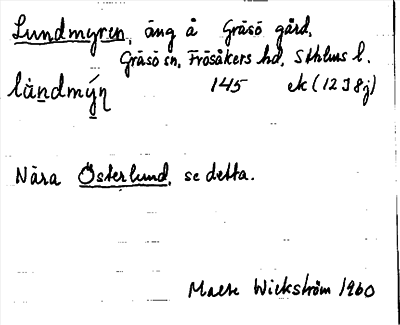 Lundmyren, äng å Gräsö gård,
Gräsö sn, Frösåkers hd, Sthlms l.
145 ek (12 I 8j)
Nära Österlund, se detta.
Märta Wickström 1960